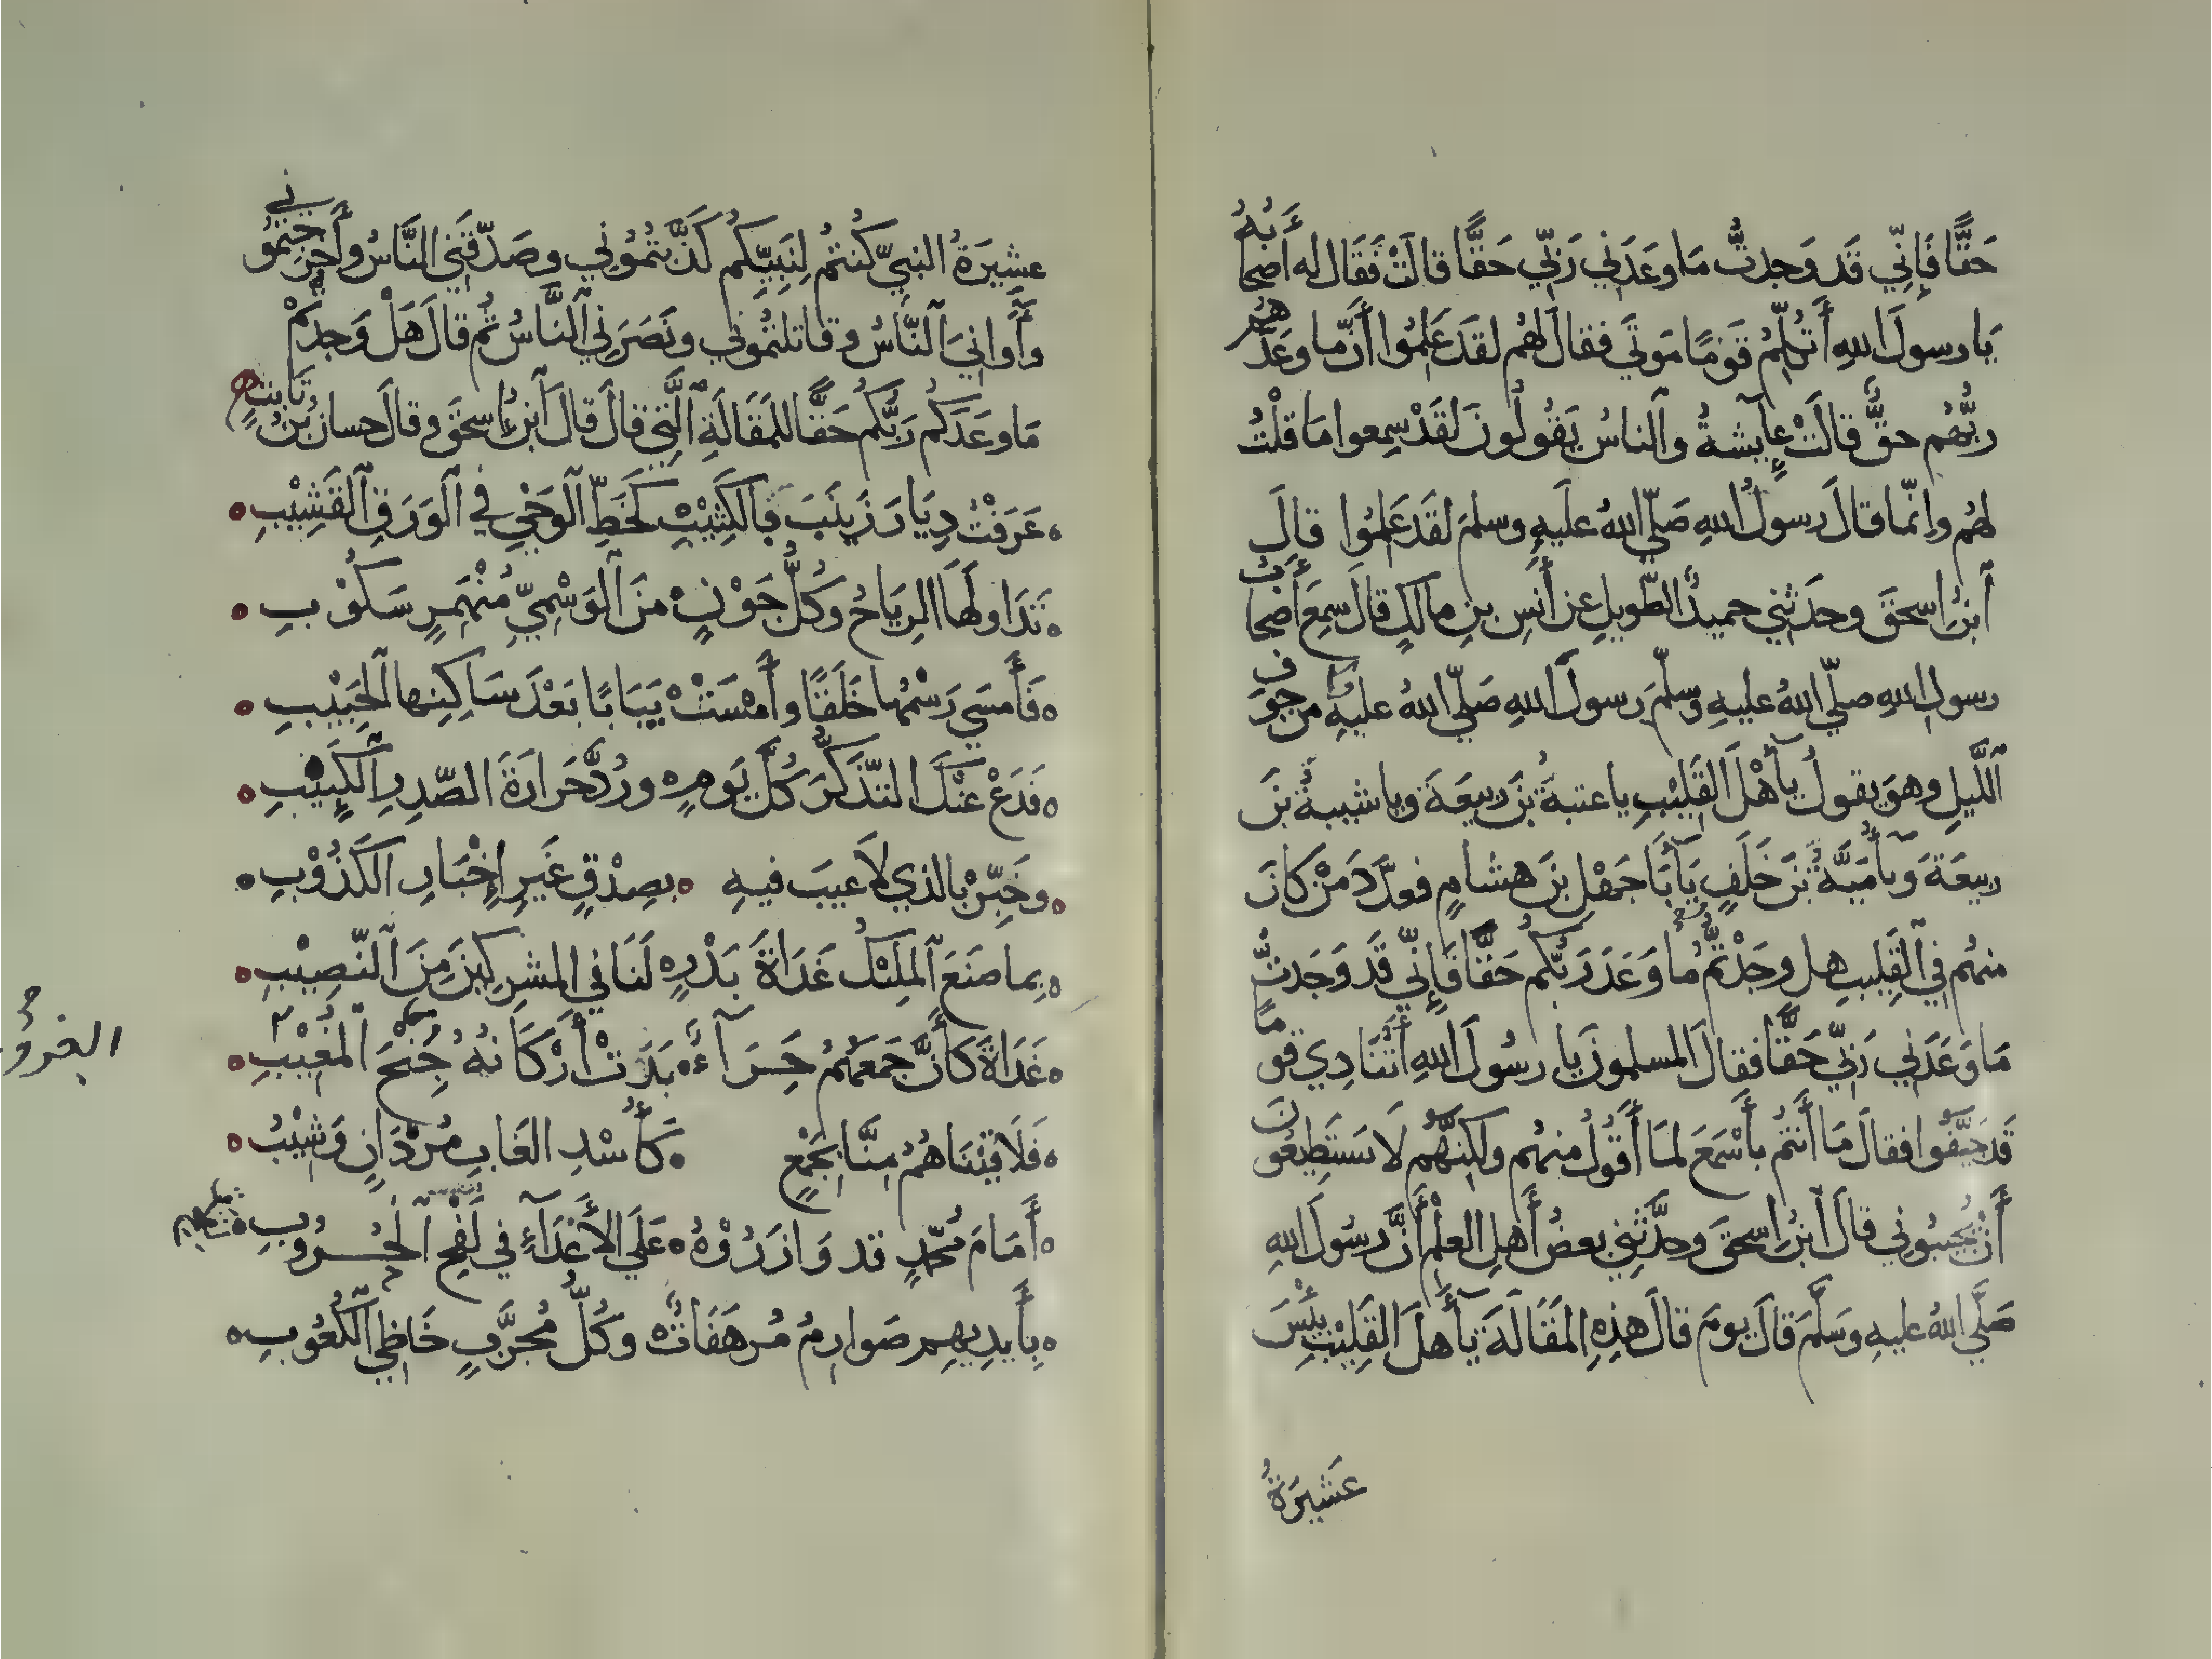 حَقًّا فَإِنِّي قَد وَجدتُّ مَا وعَدَنِي رَبِّي حَقًّا قالَتْ فَقَال له أَصحابُهُ
يَا رسولَ اللهِ أَتُكَلِّمُ قَومًا مَوتَى فقالَ لَهُم لقَد عَلِمُوا أَنَّ ما وعَدَهُم
ربُّهُم حقٌّ قالَتْ عايِشةُ والناسُ يَقُولُونَ لَقَدْ سمِعوا مَا قُلْتُ
لهُم وإنّما قالَ رسولُ اللهِ صَلّى اللهُ عليهِ وسلمَ لقَد عَلِمُوا قالَ
ابنُ إسحقَ وحدَثني حميدٌ الطّويلِ عن أَنَسِ بنِ مالكٍ قالَ سمِعَ أَصْحابُ
رسولِ اللهِ صلّى اللهُ عليهِ وسلّمَ رسولَ اللهِ صَلّى اللهُ عليهِ من جوفِ
اللَّيلِ وهوَ يقولُ يا أَهْلَ القَلِيْبِ يا عتبةُ بْنَ ربيعَةَ ويا شيبةُ بْنَ
ربيعَةَ وَيا أُمَيَّةُ بْنَ خَلَفٍ يَا أَبَا جَهْلِ بْنَ هشامٍ فعدَّدَ مَنْ كَانَ
منهُم في القَلِيبِ هل وجَدْتُّمُ مَا وَعَدَ رَبُّكُم حَقًّا فَإِنِّي قَد وَجَدتُّ
مَا وَعَدَنِي رَبِّي حَقًّا فقالَ المسلمونَ يا رسُولَ اللهِ أَتُنَادِي قومًا
قَد جَيَّفُوا فقالَ مَا أَنتُم بأَسْمَعَ لمَا أَقُولُ منهُم ولكِنَّهُم لا يَستَطِيعُونَ
أَنْ يُجيبُونِي قالَ ابنُ إسحقَ وحدَّثنِي بعضُ أَهلِ العلْمِ أَنَّ رسُولَ اللهِ
صَلَّى اللهُ عليهِ وسَلَّمَ قالَ يومَ قالَ هذِهِ المَقَالَةَ يا أَهلَ القَلِيْبِ بِئْسَ
عَشِيرَةُ
عشِيرَةُ النبيّ كُنتُم لِنَبِيِّكُم كَذَّبتُمُونِي وصَدَّقَنِي النَّاسُ وأَخرَجتمُونِي
وآوانِيَ النَّاسُ وقاتلتُمُونِي ونَصَرَنِي النَّاسُ ثُم قالَ هَلْ وَجدتُمْ
مَا وعَدَكُم رَبُّكُم حَقًّا للمَقَالَةِ الَّتِي قالَ قالَ ابنُ إسحقَ وقالَ حسانُ بْنُ ثَابتٍ
عَرَفْتُ دِيَارَ زَينَبَ بِالكَثِيْبِ كَخَطِّ الوَحْيِ فِي الوَرَقِ القَشِيْبِ
تَدَاولَهَا الرِيَاحُ وكُلُّ جَوْنٍ منَ الوَسْمِيِّ مُنْهَمِرٍ سَكُوْبِ
فَأَمسَى رَسْمُها خَلَقًا وأَمْسَتْ يَبَابًا بَعْدَ سَاكِنِها الحَبِيْبِ
فَدَعْ عَنْكَ التذَكُّرَ كُلَّ يَومٍ ورُدَّ حَرارَةَ الصّدرِ الكَئِيْبِ
وخَبِّرْ بالذي لَا عَيبَ فيهِ بصِدْقٍ غَيرِ إِخْبَارِ الكَذُوْبِ
بِما صَنَعَ المَلِيْكُ غَدَاةَ بَدْرٍ لَنَا في المشرِكِينَ مِنَ النّصِيْبِ
غَدَاةَ كَأَنَّ جَمعَهُمُ حِرَآءٌ بَدَتْ أَرْكَانُهُ جِنْحَ المَغِيْبِ
الغروب
فَلَاقَيْنَاهُمُ مِنَّا بجَمْعٍ كَأُسْدِ الغَابِ مُرْدَانٍ وَشِيْبِ
أَمَامَ مُحَمّدٍ قد وَازَرُوْهُ عَلَى الأَعْدَآءِ في لَفْحِ الحُرُوبِ
بِأَيدِيهِم صَوارِمُ مُرهَفَاتٌ وكُلُّ مُجرَّبٍ خَاظِي الكُعُوبِ